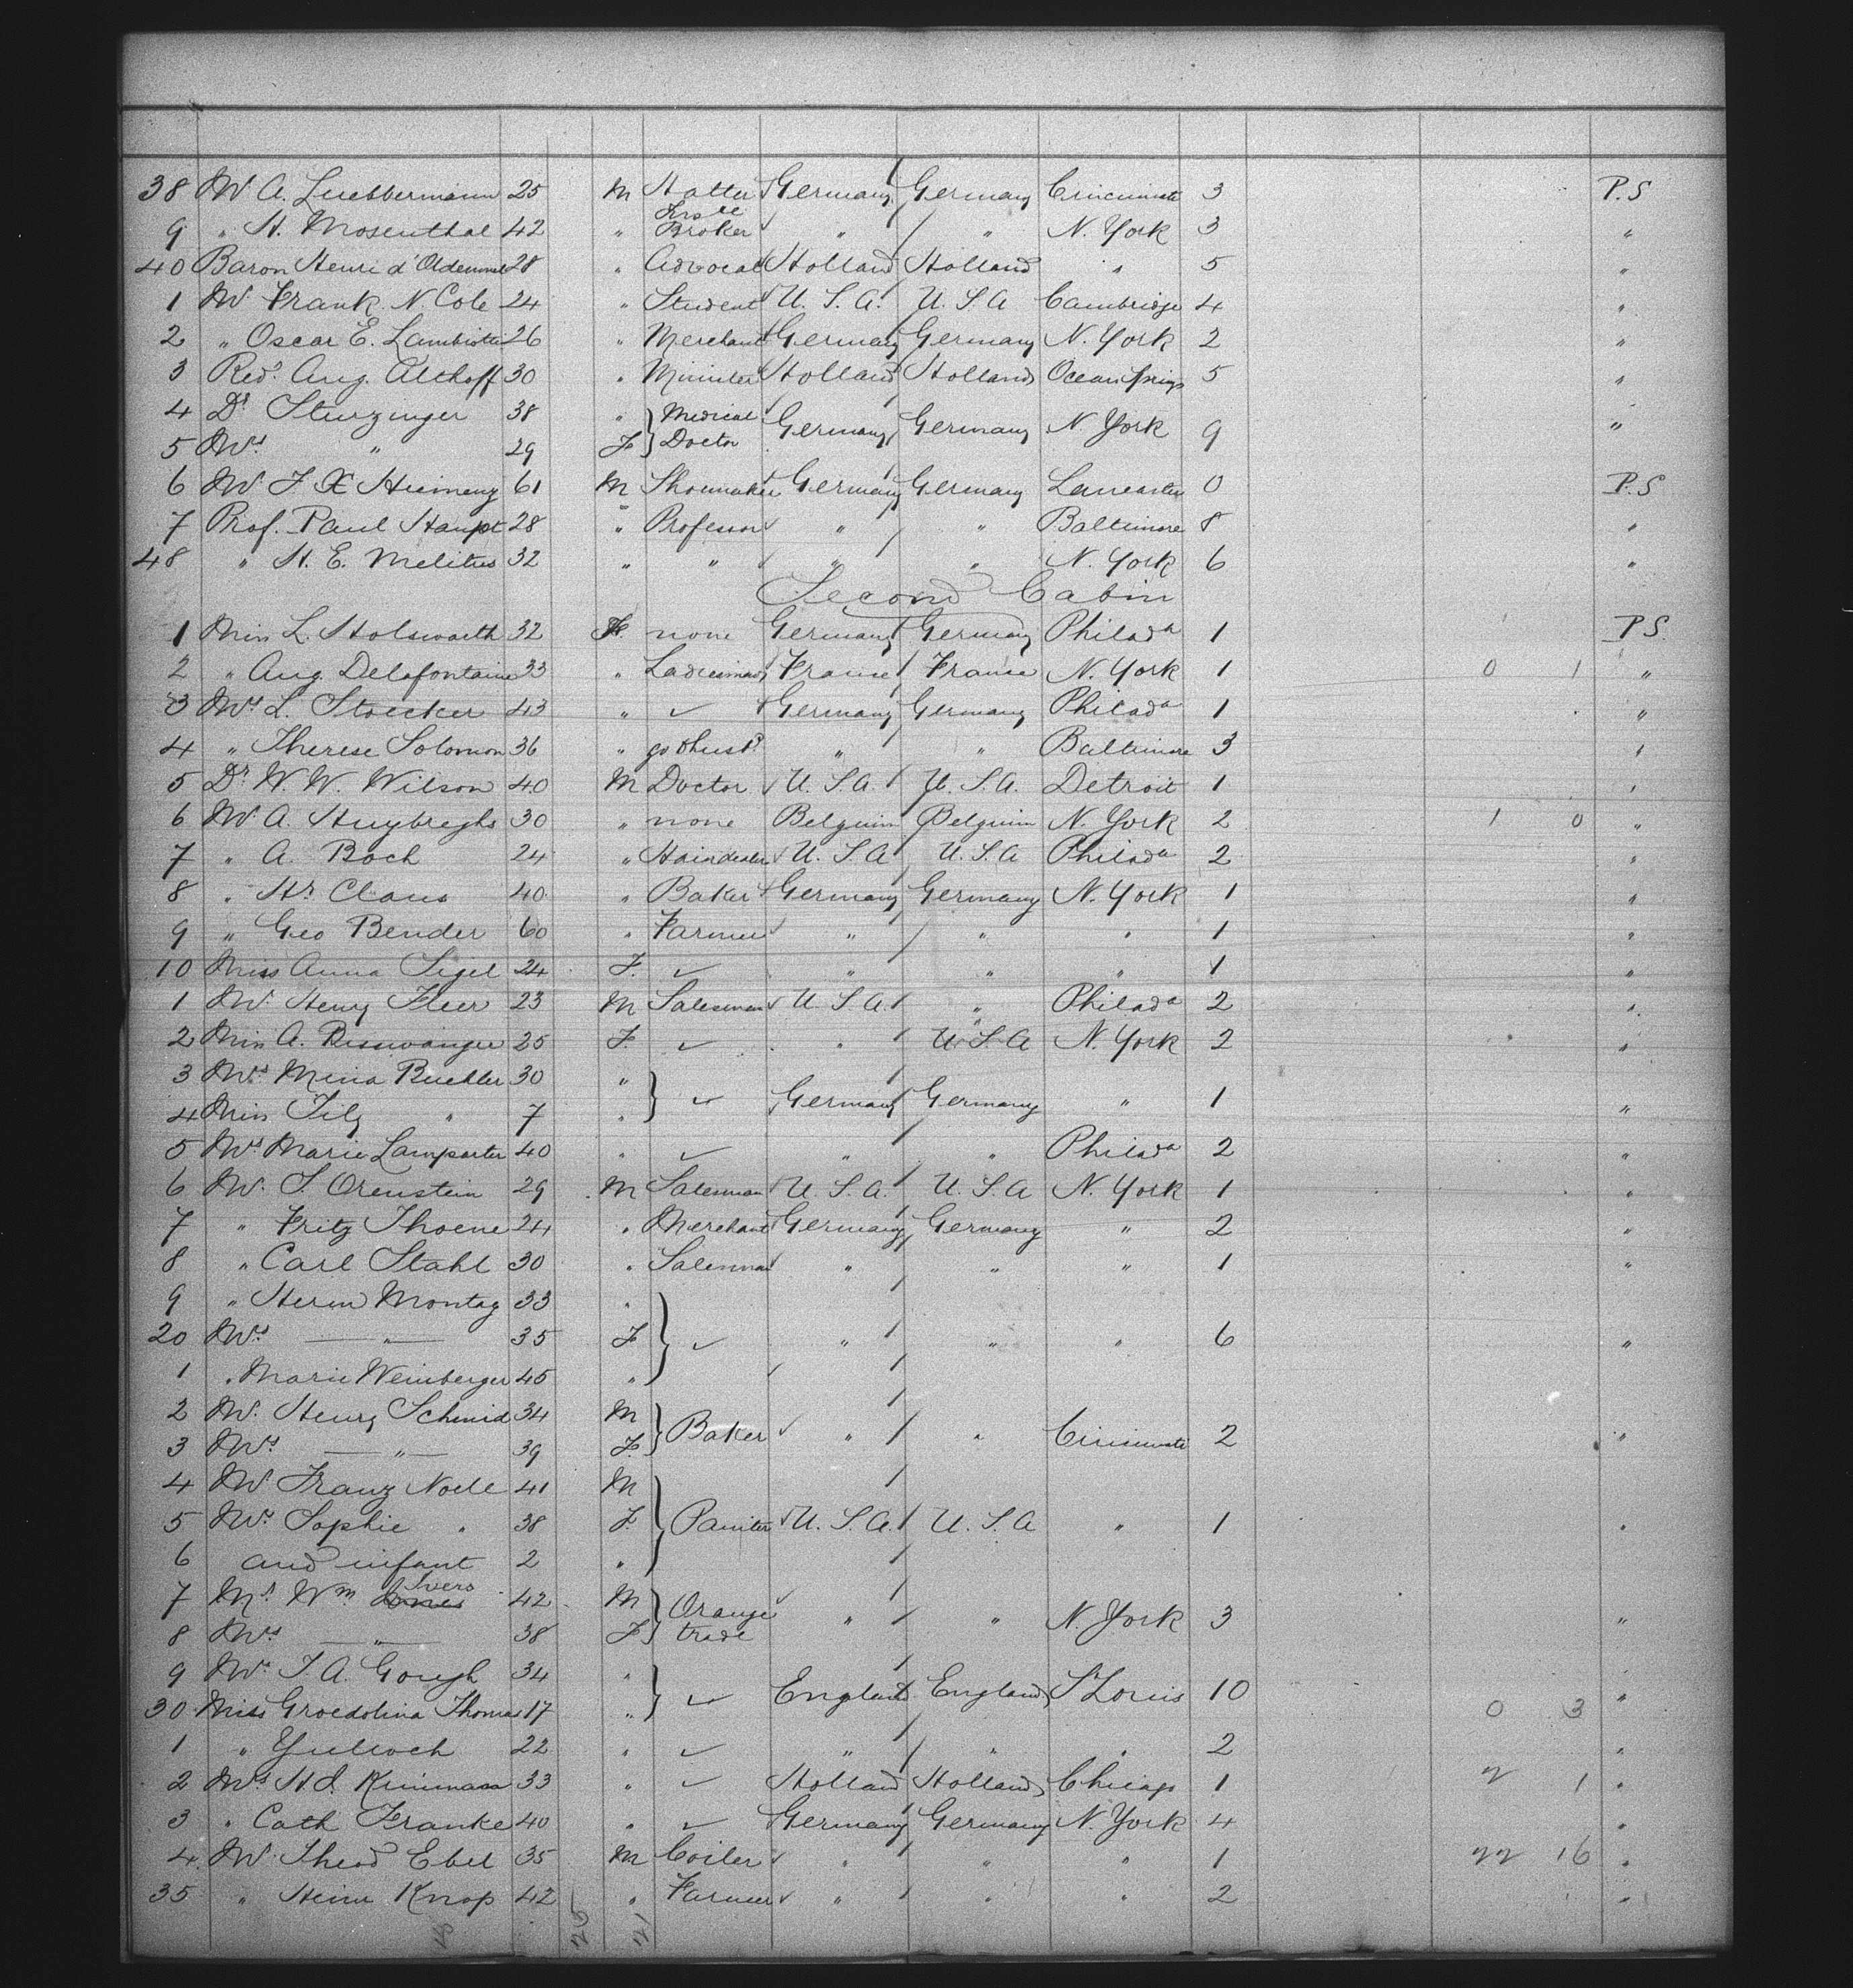 38 Mr A. Luebbermann 25 M Hatter Germany Germany Cincinnati 3 P.S
9 " H. Mosenthal 42 " Broker " " N. York 3 "
40 Baron Henri d' 28 " Advocat Holland Holland " 5 "
1 Mr Frank N. Cole 24 " Student U. S. A. U. S. A Cambridge 4 "
2 " Oscar E. 26 " Merchant Germany Germany N. York 2 "
3 Revd. Aug. Althoff 30 " Minister Holland Holland Ocean Springs 5 "
4 Dr Sturzinger 38 " } Medical
5 Mrs " 29 F } Doctor Germany Germany N. York 9 "
6 Mr F X Hiemenz 61 M Shoemaker Germany Germany Lancaster 0 P.S
7 Prof. Paul Haupt 28 " Professor " " Baltimore 8 "
48 " H. E. Melitus 32 " " " " N. York 6 "
Second Cabin
1 Miss L. Holsworth 32 F. none Germany Germany Philada 1 P S.
2 " Aug. Delafontaine 33 " Ladiesmaid France France N. York 1 0 1 "
3 Mrs L. Stoecker 43 " ✓ Germany Germany Philada 1 "
4 " Therese Solomon 36 " " " Baltimore 3 "
5 Dr. W. W. Wilson 40 M Doctor U. S. A. U. S. A. Detroit 1 "
6 Mr A. Huybreghs 30 " none Belguim Belguim N. York 2 1 0 "
7 " A. Boch 24 " Hairdealer U. S. A U. S. A Philada 2 "
8 " Hr Claus 40 " Baker Germany Germany N. York 1 "
9 " Geo Bender 60 " Farmer " " " 1 "
10 Miss Anna Sigel 24 F. ✓ " " " 1 "
1 Mr. Henry Fleer 23 M Salesman U. S. A. " Philada 2 "
2 Miss A. 25 F. ✓ " U. S. A N. York 2 "
3 Mrs Mina Buehler 30 " }
4 Miss Tily " 7 " } ✓ Germany Germany " 1 "
5 Mrs Marie Lamparter 40 " ✓ " " Philada 2 "
6 Mr. S. Orenstein 29 M Salesman U. S. A. U. S. A N. York 1 "
7 " Fritz Thoene 24 " Merchant Germany Germany " 2 "
8 " Carl Stahl 30 " Salesman " " " 1 "
9 " Herm Montag 33 " }
20 Mrs " 35 F } ✓ " " " 6 "
1 " Marie Weinberger 45 " }
2 Mr. Henry Schmid 34 M }
3 Mrs " 39 F. } Baker " " Cincinnati 2 "
4 Mr Franz Noll 41 M }
5 Mrs Sophie " 38 F. } Painter U. S. A. U. S. A " 1 "
6 and infant 2 " }
7 Mr. Wm. Ivers 42 M } Orange
8 Mrs " 38 F } trade " " N. York 3 "
9 Mrs J. A. Gough 34 " }
30 Miss Thomas 17 " } ✓ England England St Louis 10 0 3 "
1 " 22 " ✓ " " " 2 "
2 Mrs H. J. 33 " ✓ Holland Holland Chicago 1 2 1 "
3 " Cath Franke 40 " ✓ Germany Germany N. York 4 "
4 Mr. Theod Ebel 35 M Coiler " " " 1 22 16 "
35 " Heinr Knop 42 " Farmer " " " 2 "
25 21